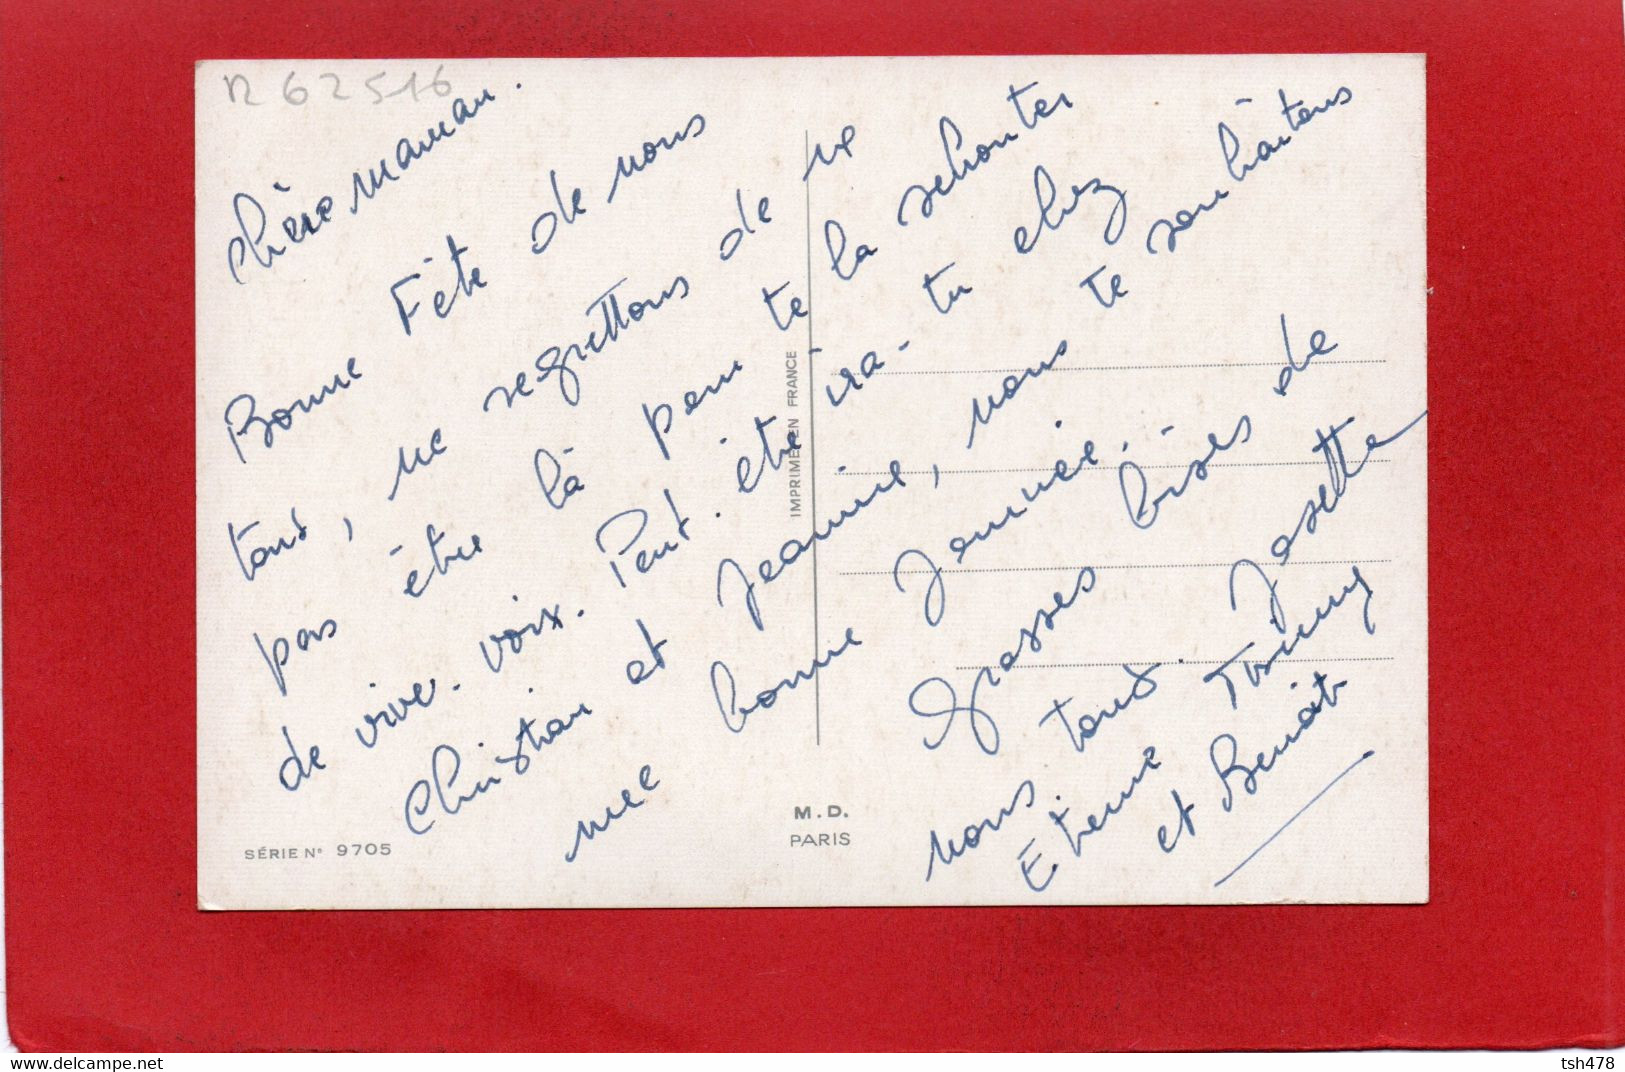 n 62516
Chère maman.
Bonne Fête de nous
tous, ne regrettons de ne
pas être là pour te la sehouter
de vive-voix. Peut-être ira-tu chez
Christian et Jeannine, nous te souhaitons
une bonne Journée.
Grosses bises de
nous tous. Josette
Etienne Thierry
et Benoit
IMPRIMÉ EN FRANCE
SÉRIE N° 9705
M.D.
PARIS
delcampe.net
tsh478